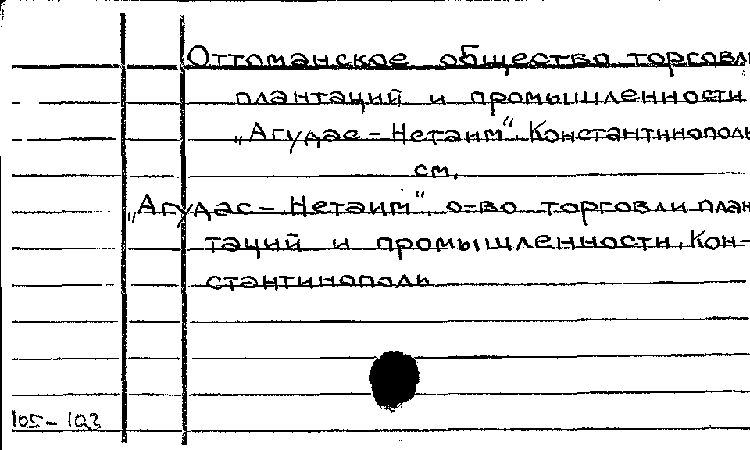 Оттоманское общество торговли
плантаций и промышленности
„Агудас-Нетаим“ Константинополь
см.
„Агудас-Нетаим“, о-во торговли план
таций и промышленности, Кон-
стантинополь
105-103